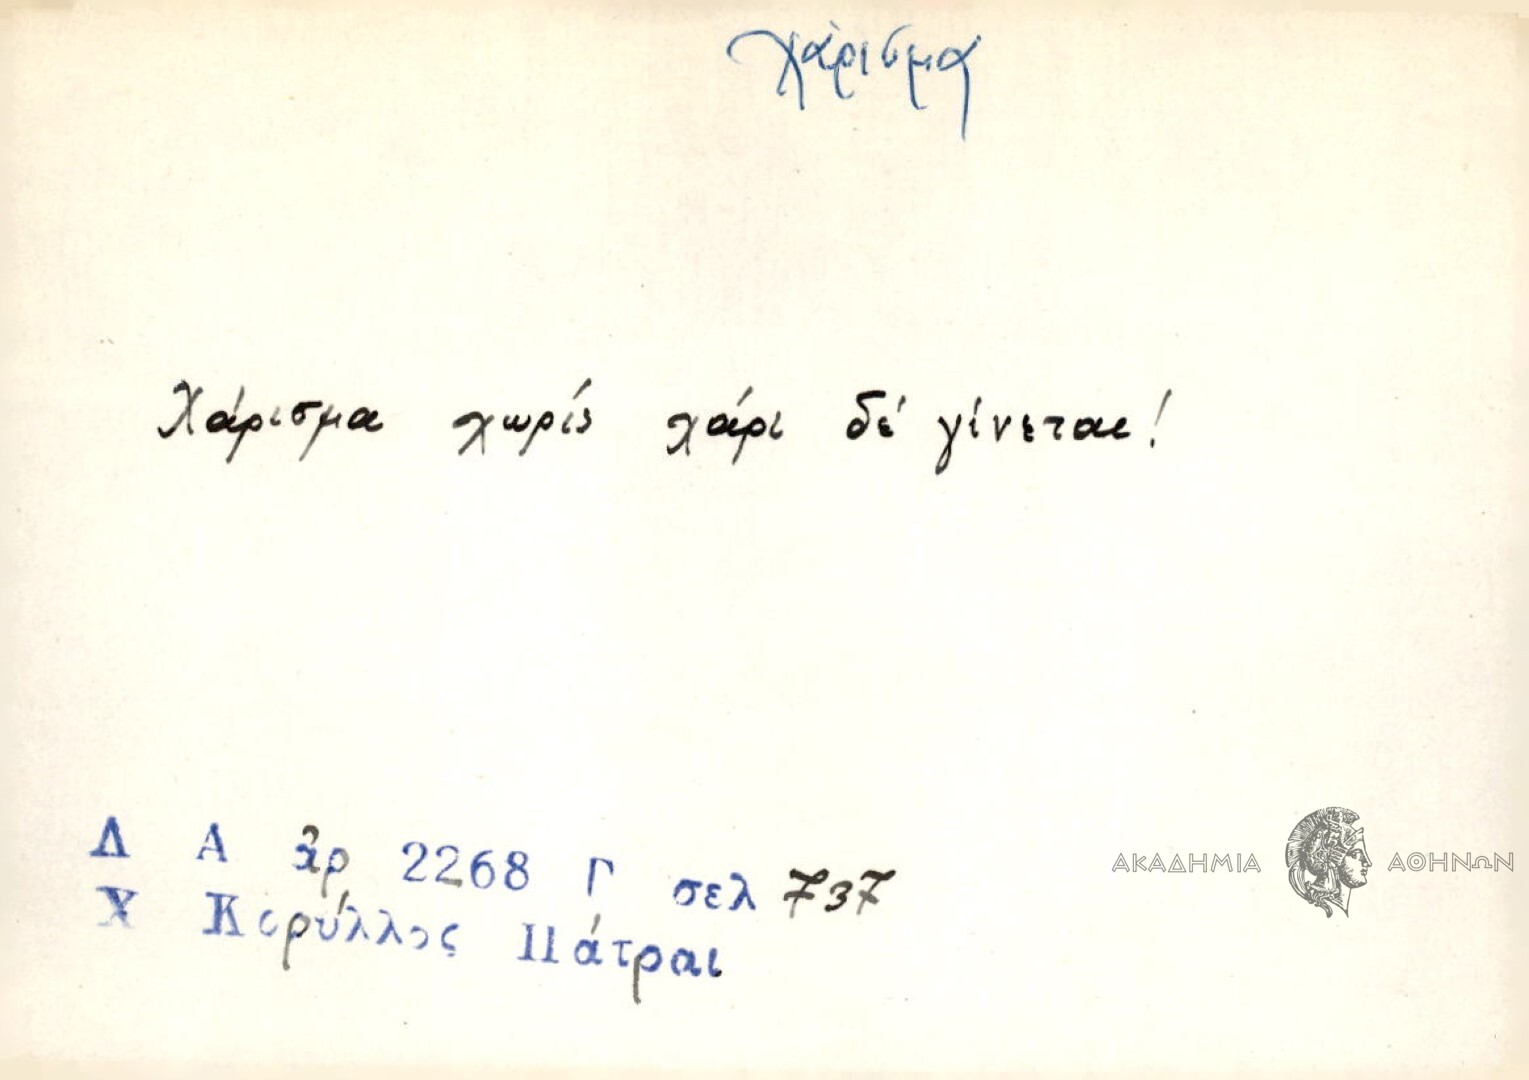 χάρισμα
Χάρισμα χωρίς χάρι δέ γίνεται!
Λ Α ἀρ 2268 Γ σελ 737
Χ Κορύλλος Πάτραι
ΑΚΑΔΗΜΙΑ ΑΘΗΝΩΝ